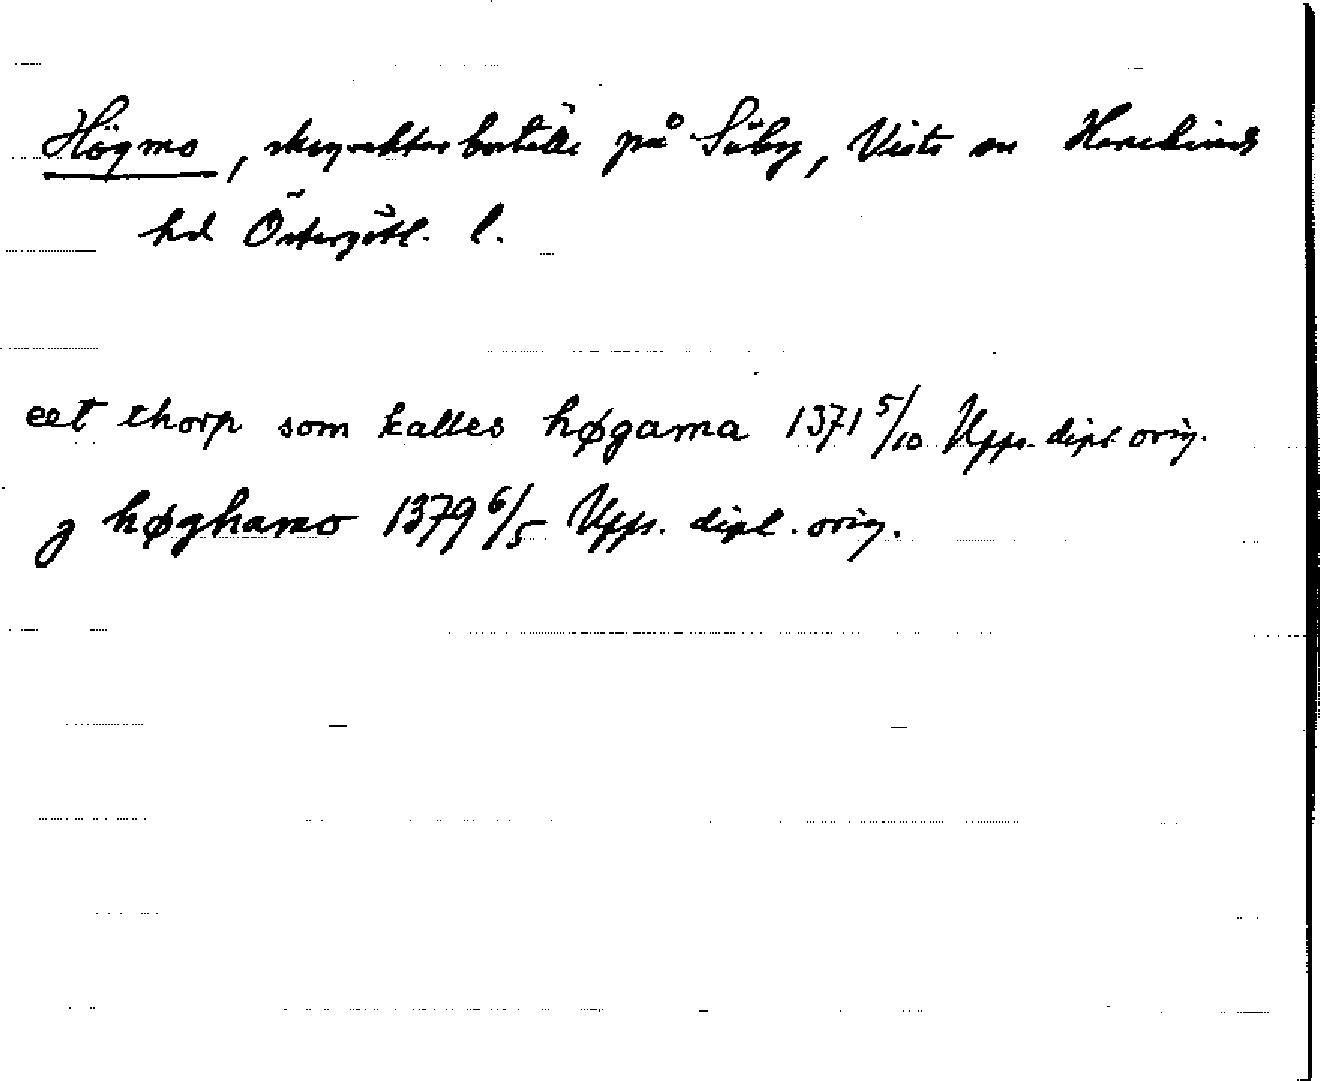 Högmo, skogvaktarboställe på Säby, Vists sn Hanekinds
hd Östergötl. l.
eet thorp som kalles høgama 1371 5/10 Upps. dipl. orig.
j høghamo 1379 6/5 Upps. dipl. orig.